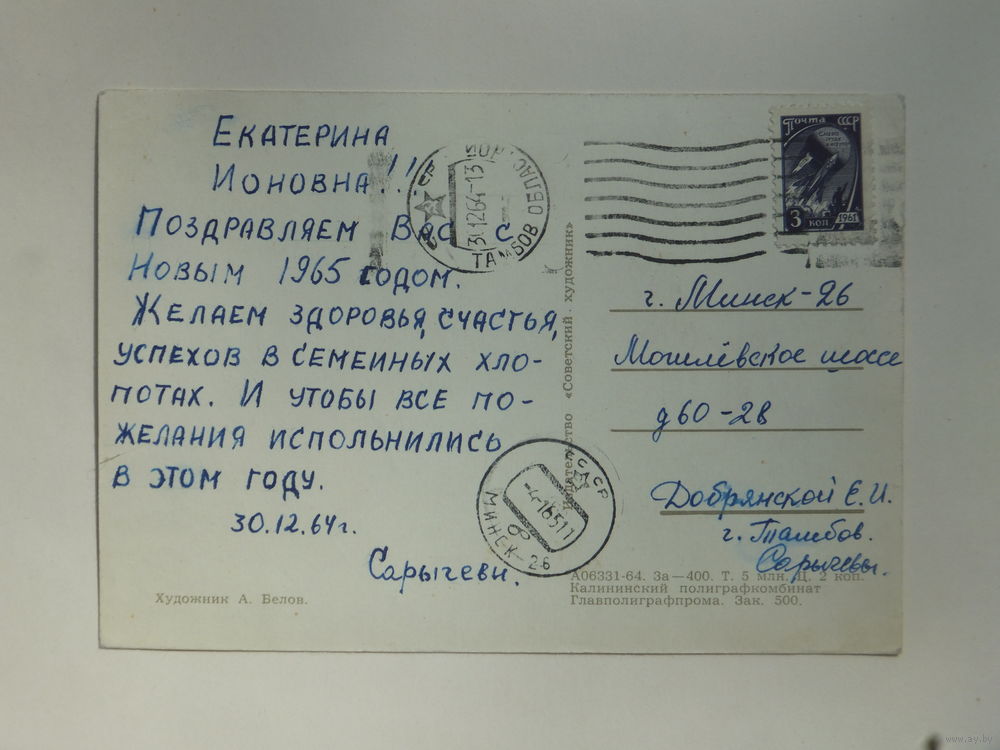 ЕКАТЕРИНА
ИОНОВНА!!
ПОЗДРАВЛЯЕМ ВАС С
НОВЫМ 1965 ГОДОМ.
ЖЕЛАЕМ ЗДОРОВЬЯ, СЧАСТЬЯ,
УСПЕХОВ В СЕМЕЙНЫХ ХЛО-
ПОТАХ. И ЧТОБЫ ВСЕ ПО-
ЖЕЛАНИЯ ИСПОЛЬНИЛИСЬ
В ЭТОМ ГОДУ.
30.12.64г.
Сарычевы.
Художник А. Белов.
ТАМБОВ ОБЛАС
Издательство «Советский художник»
Почта СССР
3 КОП
1961
г. Минск-26
Могилёвское шоссе
д 60-28
Добрянской Е.И.
г. Тамбов.
Сарычевы.
СССР
-4-16511
МИНСК-26
А06331-64. За—400. Т. 5 млн. Ц. 2 коп.
Калининский полиграфкомбинат
Главполиграфпрома. Зак. 500.
www.ay.by